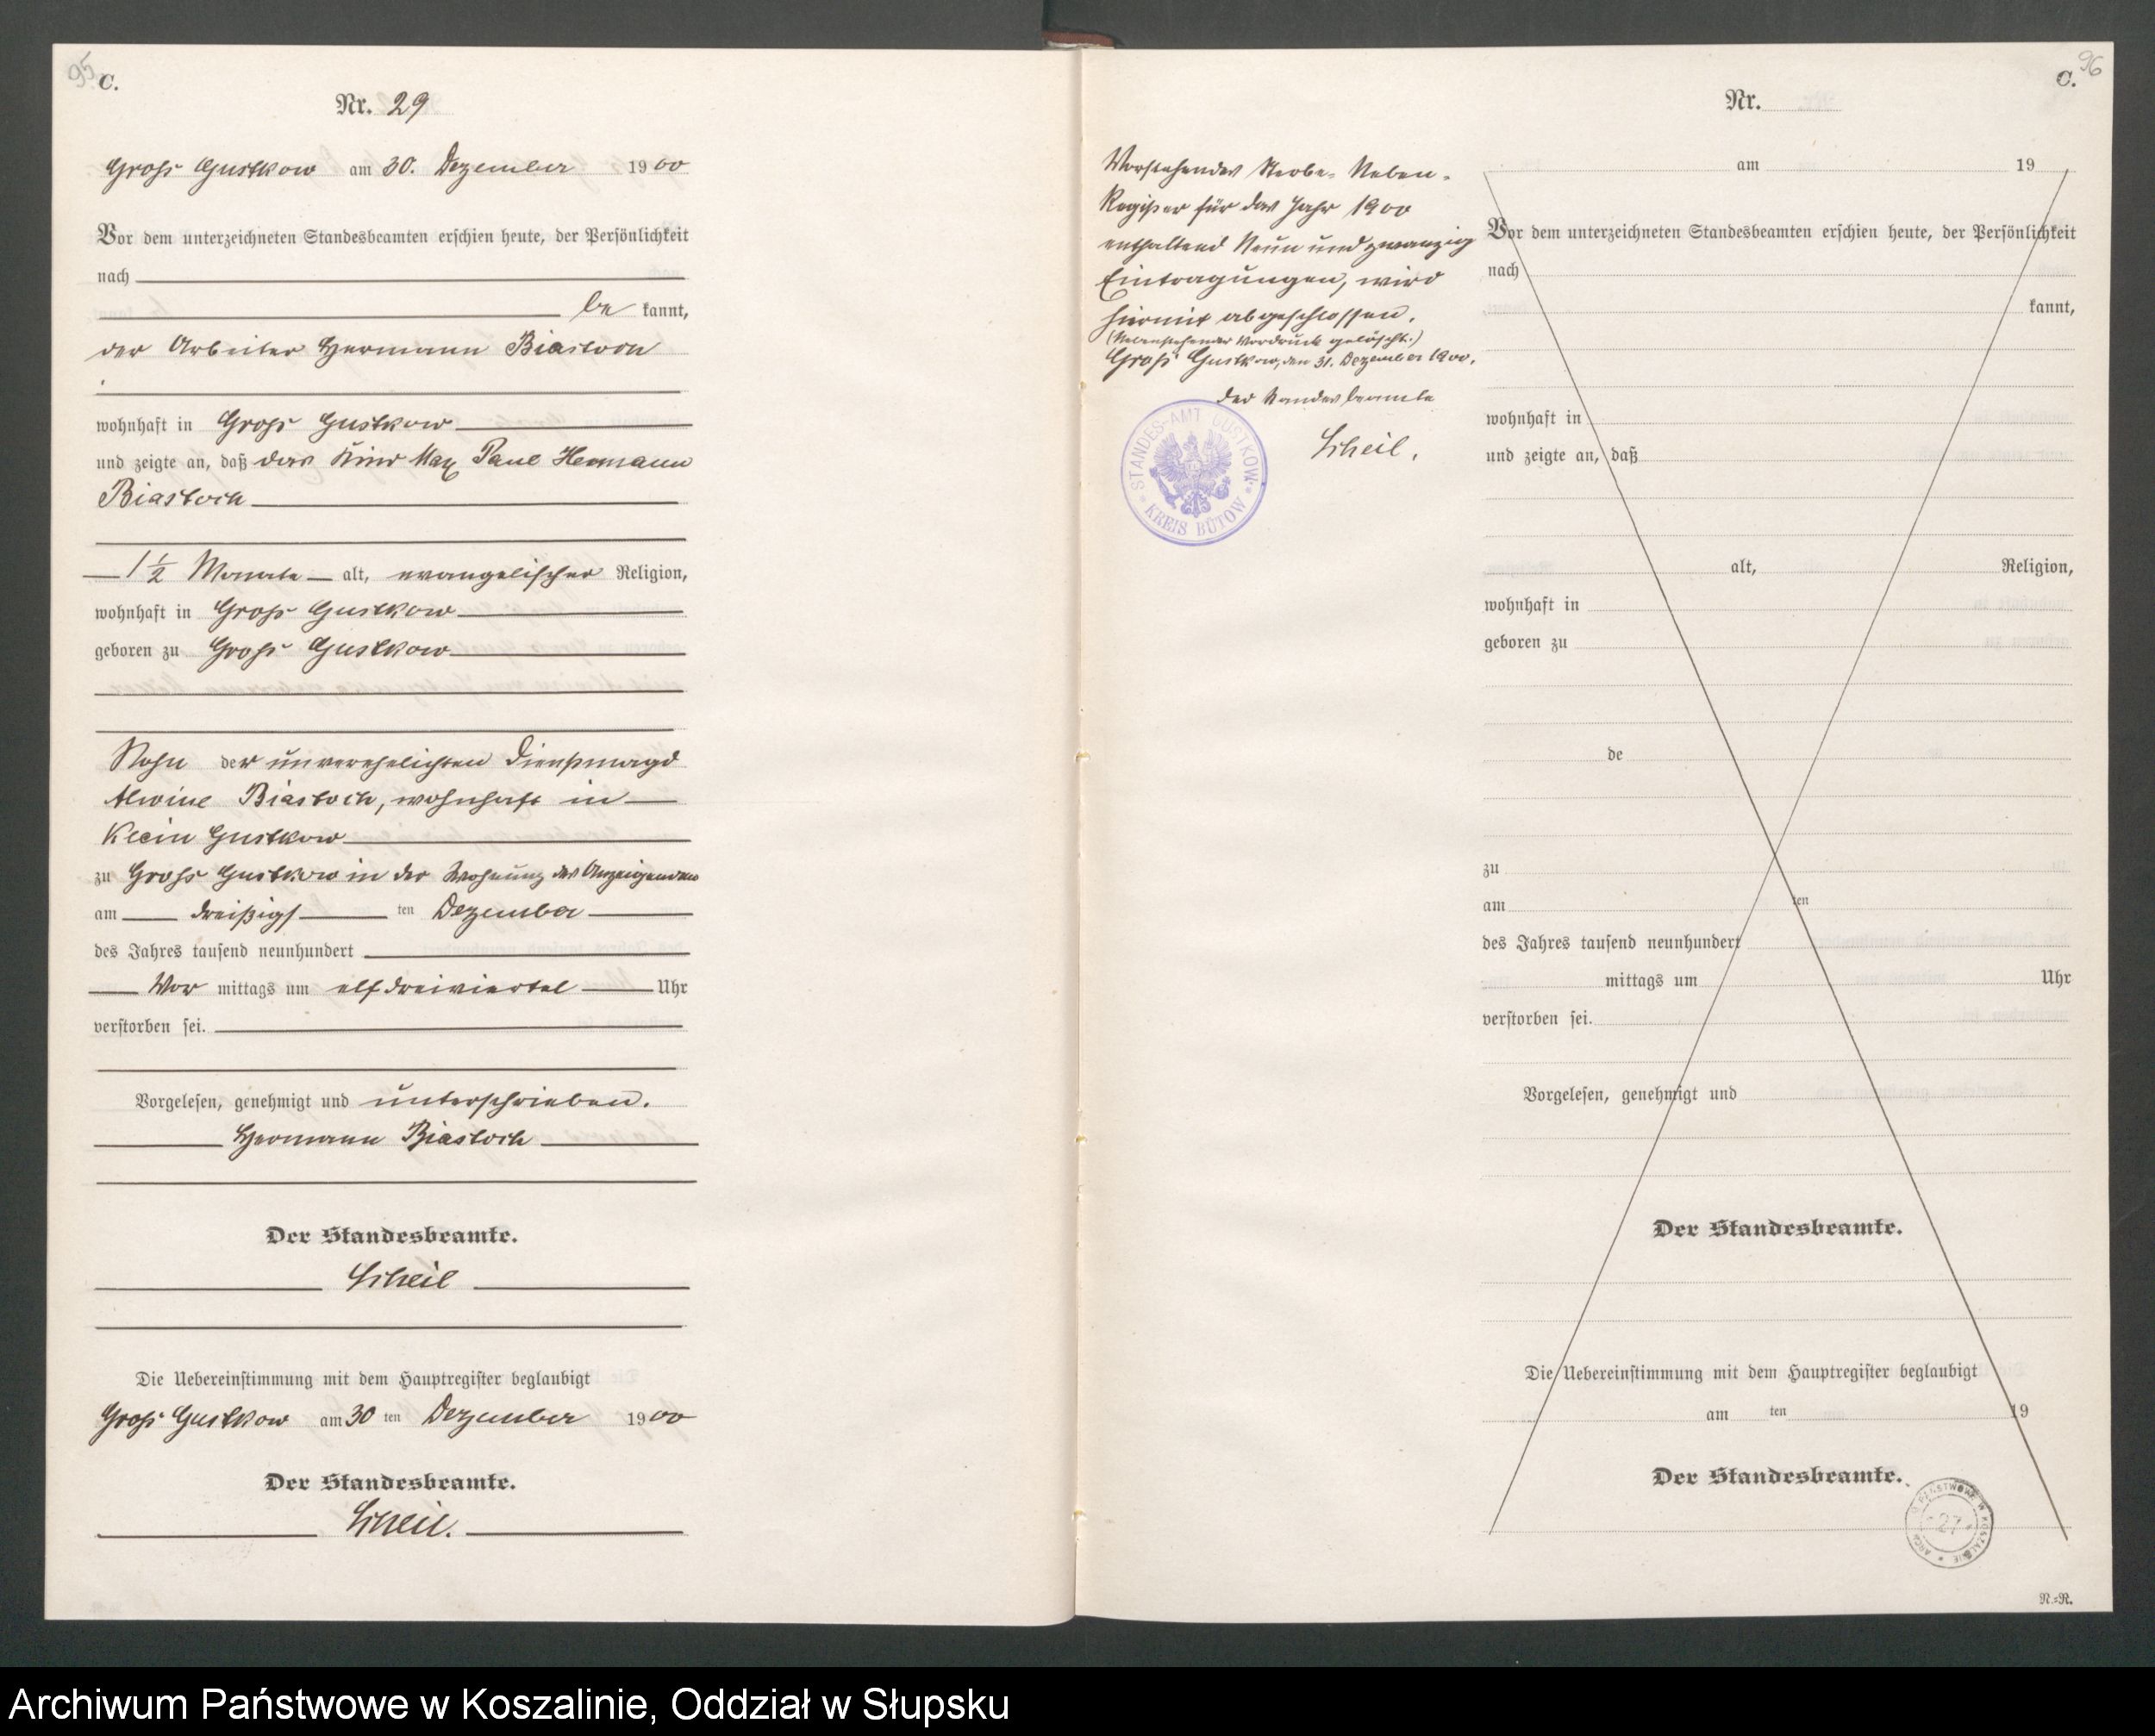 95
C.
Nr. 29
Groß Gustkow am 30. Dezember 1900
Vor dem unterzeichneten Standesbeamten erschien heute, der Persönlichkeit
nach
be kannt,
der Arbeiter Hermann Biastoch
wohnhaft in Groß Gustkow
und zeigte an, daß das Kind Max Paul Hermann
Biastoch
1 1/2 Monate alt, evangelischer Religion,
wohnhaft in Groß Gustkow
geboren zu Groß Gustkow
Sohn der unverehelichten Dienstmagd
Alwine Biastoch, wohnhaft in
Klein Gustkow
zu Groß Gustkow in der Wohnung des Anzeigenden
am dreißigs ten Dezember
des Jahres tausend neunhundert
Vor mittags um elf dreiviertel Uhr
verstorben sei.
Vorgelesen, genehmigt und unterschrieben.
Hermann Biastoch
Der Standesbeamte.
Scheil
Die Uebereinstimmung mit dem Hauptregister beglaubigt
Groß Gustkow am 30 ten Dezember 1900
Der Standesbeamte.
Scheil.
96
C.
Vorstehendes Sterbe-Neben-
Register für das Jahr 1900
enthaltend Neun und zwanzig
Eintragungen, wird
hiermit abgeschlossen.
(Nebenstehender Vordruck gelöscht.)
Groß Gustkow, den 31. Dezember 1900.
Der Standesbeamte
Scheil.
STANDES-AMT GUSTKOW.
KREIS BÜTOW
Nr.
am 19
Vor dem unterzeichneten Standesbeamten erschien heute, der Persönlichkeit
nach
kannt,
wohnhaft in
und zeigte an, daß
alt, Religion,
wohnhaft in
geboren zu
de
zu
am ten
des Jahres tausend neunhundert
mittags um Uhr
verstorben sei.
Vorgelesen, genehmigt und
Der Standesbeamte.
Die Uebereinstimmung mit dem Hauptregister beglaubigt
am ten 19
Der Standesbeamte.
PAŃSTWOWE W KOSZALINIE
27
N.=R.
Archiwum Państwowe w Koszalinie, Oddział w Słupsku